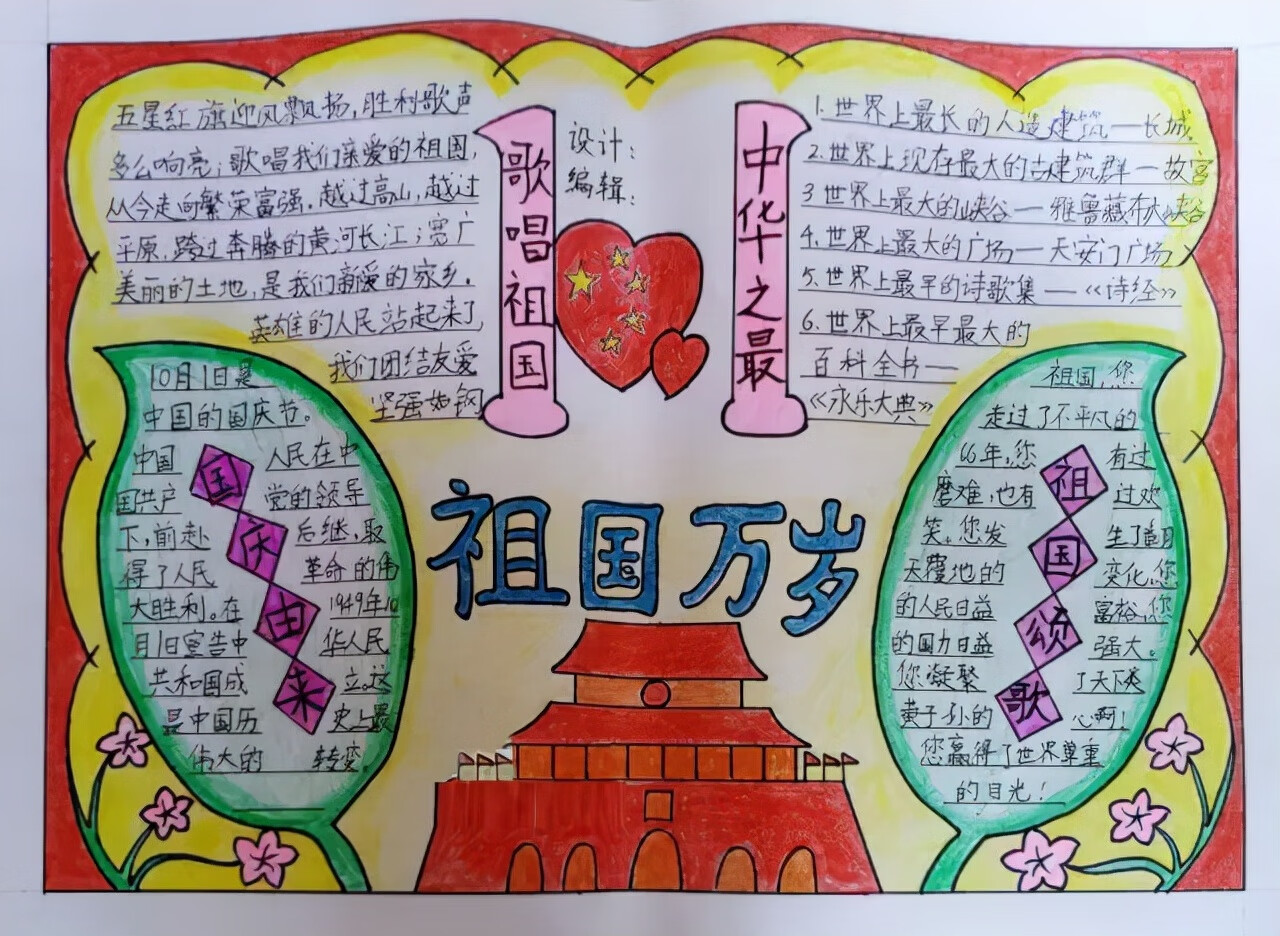 五星红旗迎风飘扬,胜利歌声
多么响亮;歌唱我们亲爱的祖国,
从今走向繁荣富强.越过高山,越过
平原,跨过奔腾的黄河长江;宽广
美丽的土地,是我们亲爱的家乡.
英雄的人民站起来了
我们团结友爱
坚强如钢
歌唱祖国
设计:
编辑:
中华之最
1.世界上最长的人造建筑—长城.
2.世界上现存最大的古建筑群—故宫
3世界上最大的峡谷—雅鲁藏布大峡谷
4.世界上最大的广场—天安门广场
5.世界上最早的诗歌集—《诗经》
6.世界上最早最大的
百科全书—
《永乐大典》
祖国万岁
国庆由来
10月1日是
中国的国庆节。
中国 人民在中
国共产 党的领导
下,前赴 后继,取
得了人民 革命的伟
大胜利。在 1949年10
月1日宣告中 华人民
共和国成 立。这
是中国历 史上最
伟大的 转变。
祖国颂歌
祖国,您
走过了不平凡的
66年,您 有过
磨难,也有 过欢
笑。您发 生了翻
天覆地的 变化,您
的人民日益 富裕,您
的国力日益 强大。
您凝聚 了天下炎
黄子孙的 心啊!
您赢得了世界尊重
的目光!